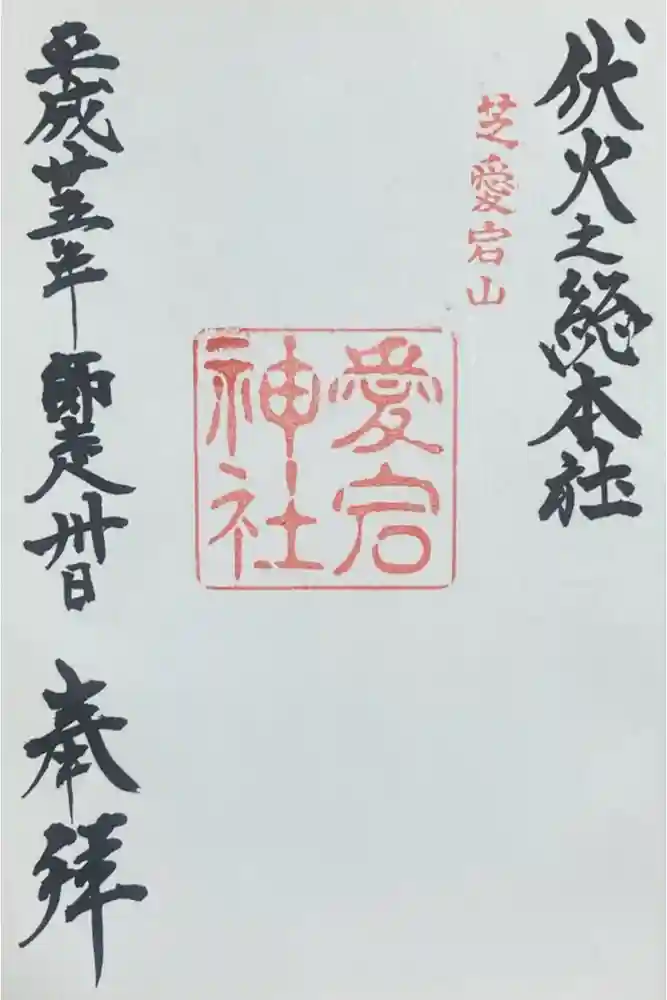 伏火之総本社
芝愛宕山
愛宕
神社
平成廿五年 師走卅日 奉拝